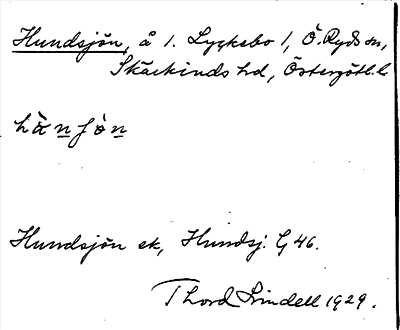 Hundsjön, å 1. Lyckebo 1, Ö. Ryds sn,
Skärkinds hd, Östergötl. l.
hà̱n ʃò̱n
Hundsjön ek, Hundsj. G 46.
Thord Lindell 1929.